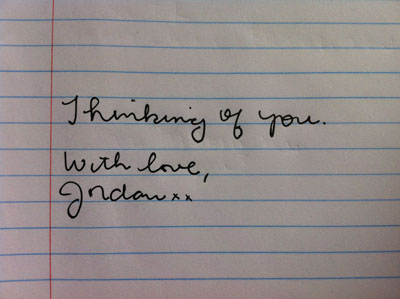 Thinking of you.
With love,
Jordan xx